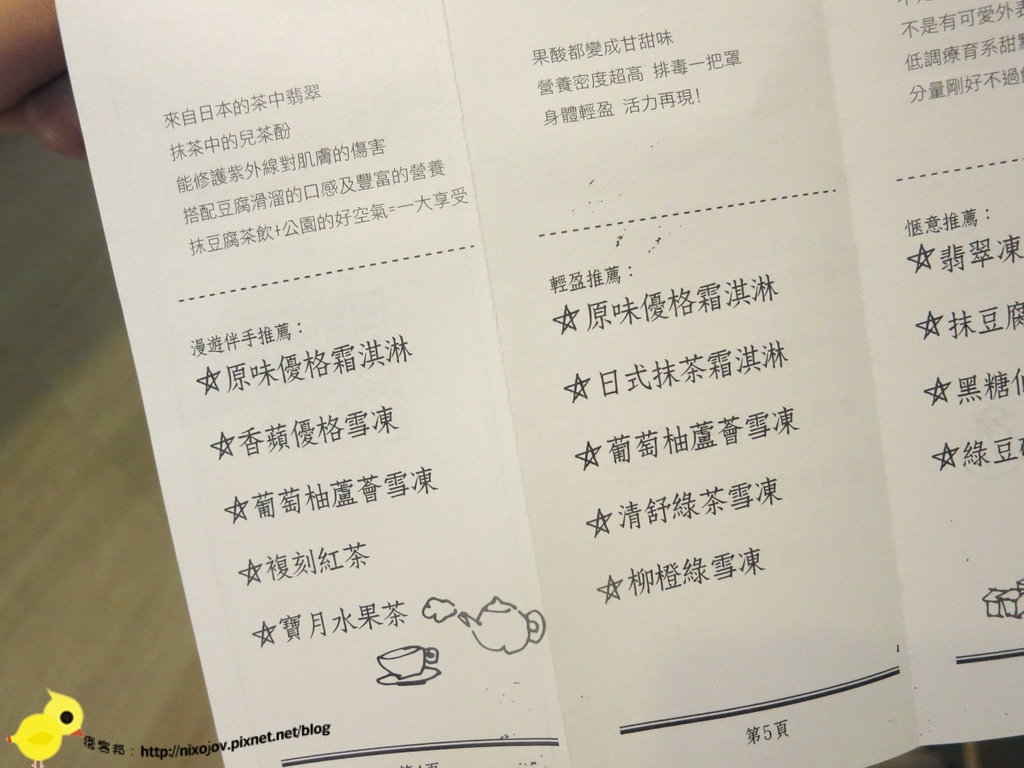 來自日本的茶中翡翠
抹茶中的兒茶酚
能修護紫外線對肌膚的傷害
搭配豆腐滑溜的口感及豐富的營養
抹豆腐茶飲+公園的好空氣=一大享受
漫遊伴手推薦：
☆原味優格霜淇淋
☆香蘋優格雪凍
☆葡萄柚蘆薈雪凍
☆複刻紅茶
☆寶月水果茶
果酸都變成甘甜味
營養密度超高 排毒一把罩
身體輕盈 活力再現!
輕盈推薦：
☆原味優格霜淇淋
☆日式抹茶霜淇淋
☆葡萄柚蘆薈雪凍
☆清舒綠茶雪凍
☆柳橙綠雪凍
第5頁
不是有可愛外表
低調療育系甜點
分量剛好不過
愜意推薦：
☆翡翠凍
☆抹豆腐
☆黑糖
☆綠豆
痞客邦：http://nixojov.pixnet.net/blog